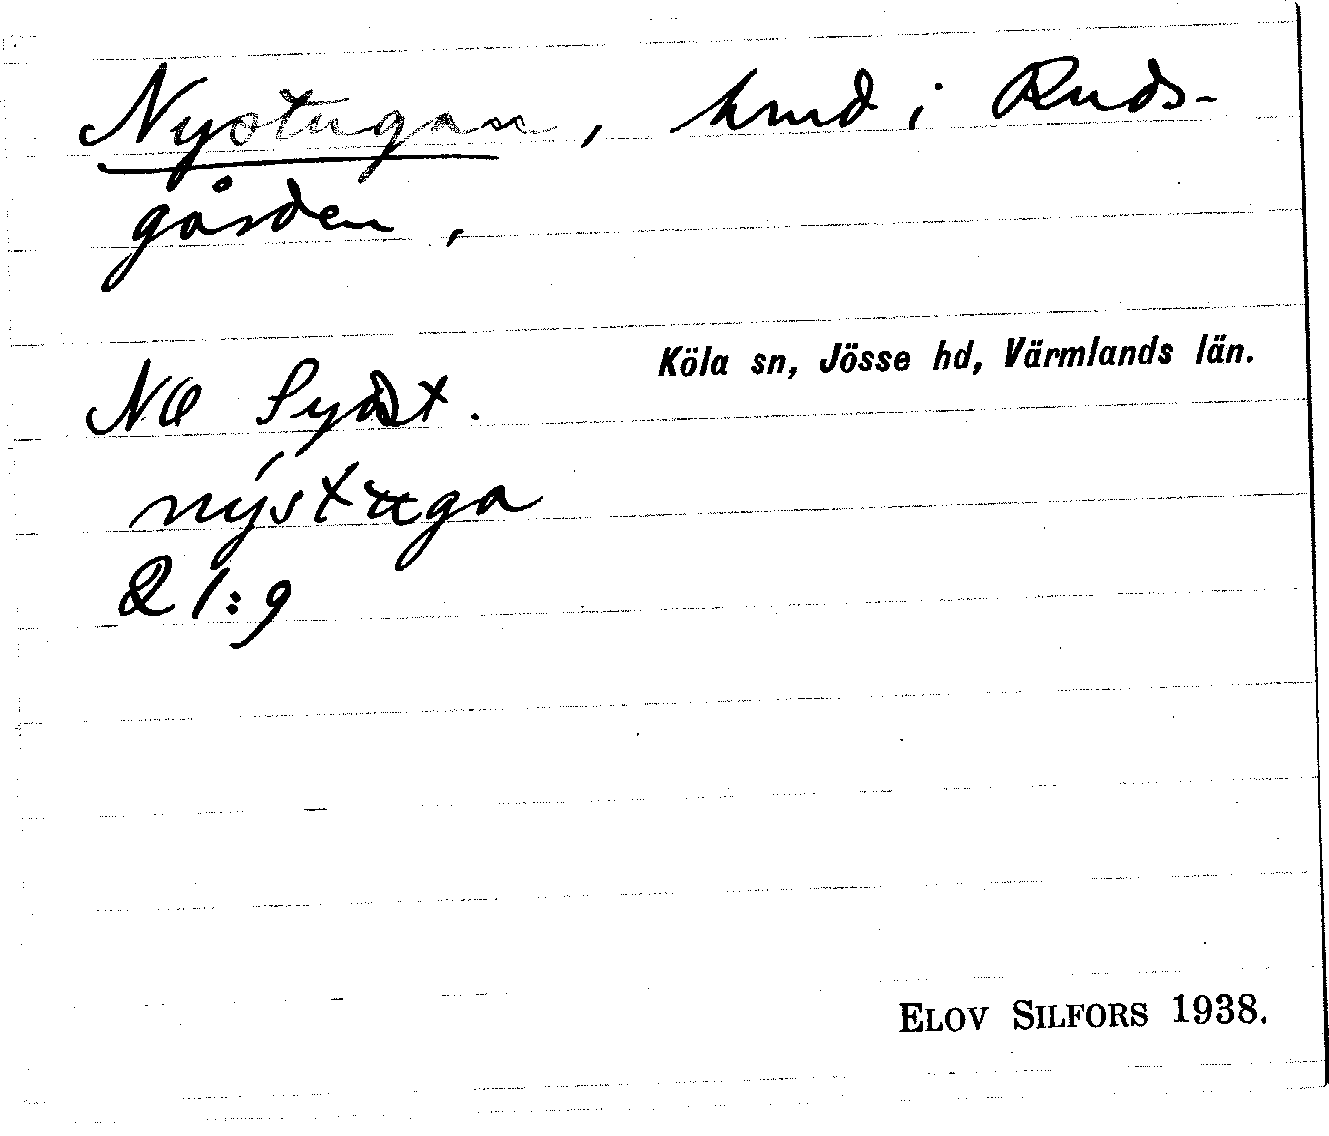 Nystugan, hmd i Ruds-
gården,
Köla sn, Jösse hd, Värmlands län.
NO
nýstuga
Q 1:9
ELOV SILFORS 1938.